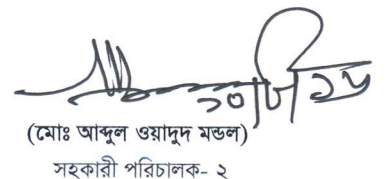 (মোঃ আব্দুল ওয়াদুদ মন্ডল)
সহকারী পরিচালক- ২